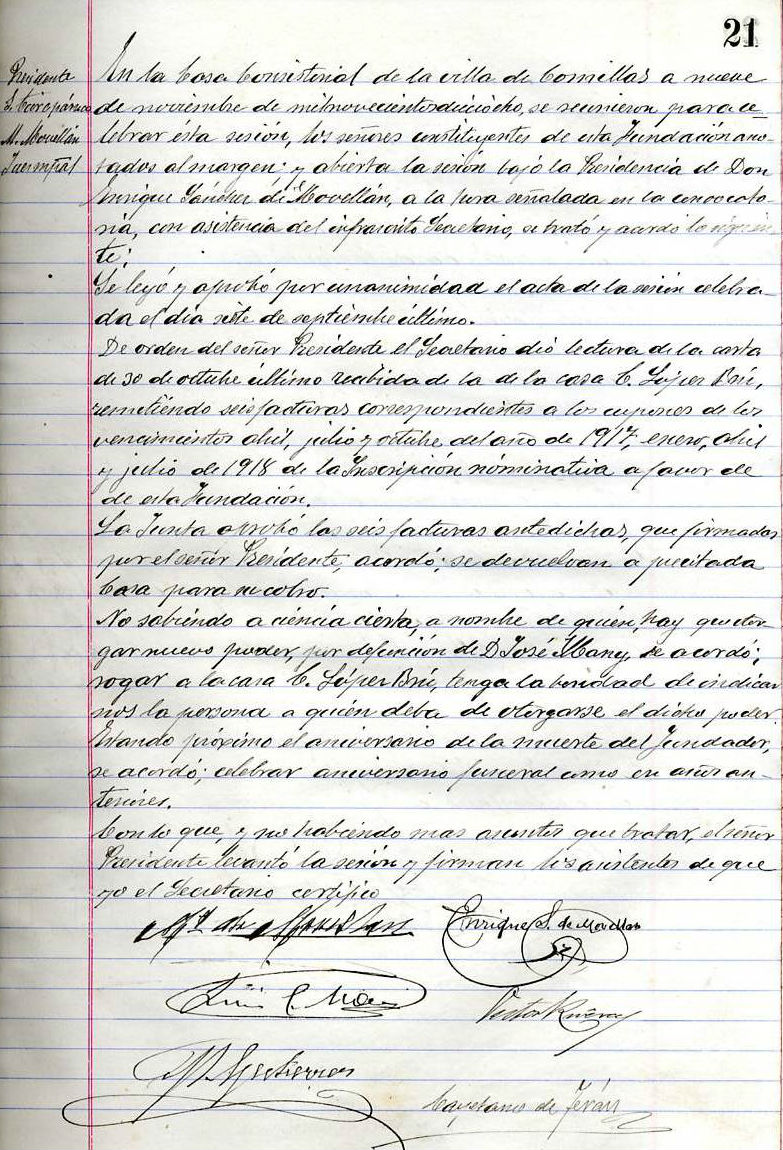 21
Presidente
S. Cura párroco
M. Movellán
Juez mpal
En la Casa Consistorial de la villa de Comillas a nueve
de noviembre de mil novecientos dieciocho, se reunieron para ce
lebrar ésta sesión, los señores constituyentes de esta Fundación ano-
tados al margen; y abierta la sesión bajo la Presidencia de Don
Enrique Sánchez de Movellán, a la hora señalada en la convocato-
ria, con asistencia del infrascrito Secretario, se trató y acordó lo siguien
te;
Se leyó y aprobó por unanimidad el acta de la sesión celebra-
da el día siete de septiembre último.
De orden del señor Presidente el Secretario dió lectura de la carta
de 30 de octubre último recibida de la de la casa C. López Brú,
remitiendo seis facturas correspondientes a los cupones de los
vencimientos abril, julio y octubre del año de 1917, enero, abril
y julio de 1918 de la Inscripción nóminativa a favor de
de esta Fundación.
La Junta aprobó las seis facturas antedichas, que firmadas
por el señor Presidente, acordó; se devuelvan a precitada
Casa para su cobro.
No sabiendo a ciéncia cierta, a nombre de quién, hay que otor
gar nuevo poder, por defunción de D José Many, se acordó;
rogar a la casa C. López Brú, tenga la bondad de indicar
nos la persona a quién deba de otorgarse el dicho poder.
Estando próximo el aniversario de la muerte del Fundador,
se acordó; celebrar aniversario funeral como en años an-
teriores.
Con lo que, y no habiendo mas asuntos que tratar, el señor
Presidente levantó la sesión y firman los asistentes de que
yo el Secretario certifico
Enrique S. de Movellan
P. Gutierrez
Cayetano de Terán